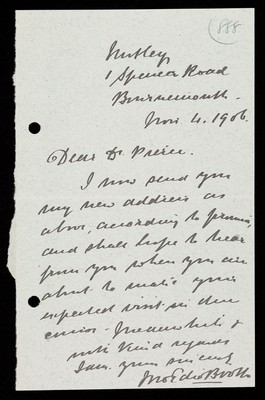 (888
Nutley
1 Spencer Road
Bournemouth.
Nov 4. 1906.
Dear Dr Peirce.
I now send you
my new address as
above, according to promise,
and shall hope to hear
from you when you are
about to make your
expected visit in due
course. Meanwhile &
with kind regards
I am yours sincerely
Jno Edw Booth